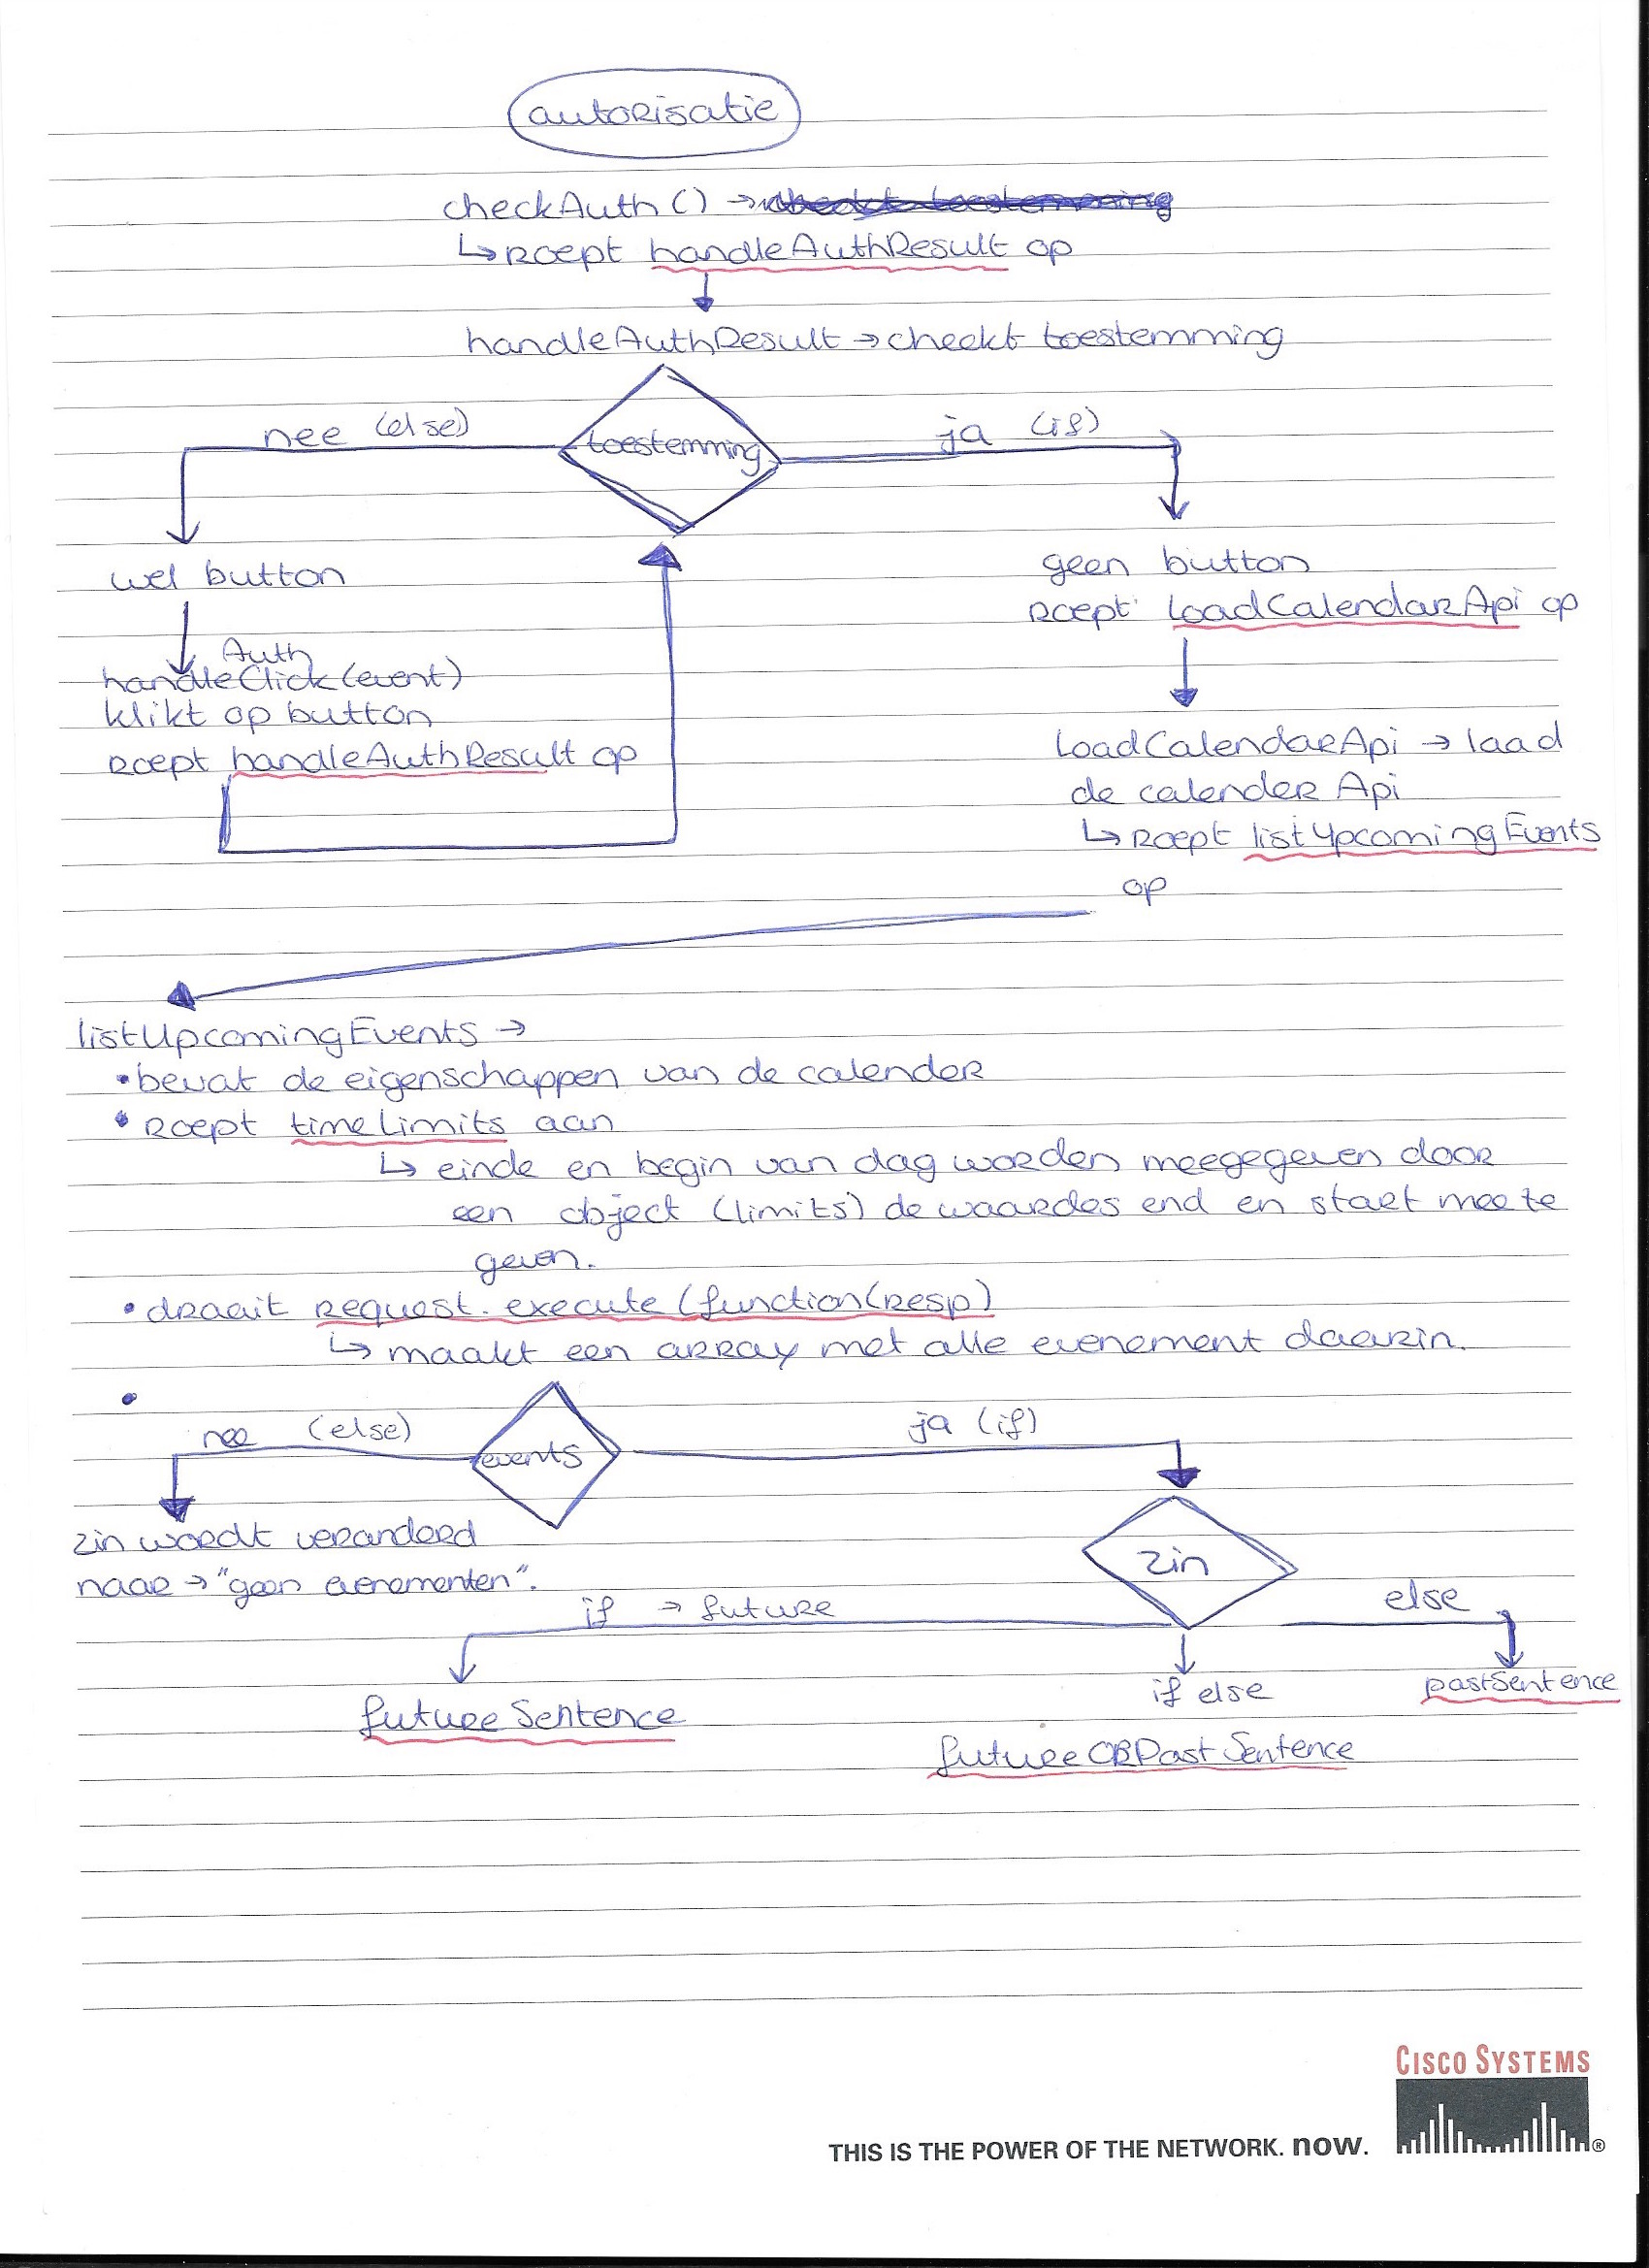 autorisatie
checkAuth() →
↳ roept handleAuthResult op
handleAuthResult → checkt toestemming
nee (else)
toestemming
ja (if)
wel button
geen button
roept loadCalendarApi op
Auth
handleClick(event)
klikt op button
roept handleAuthResult op
loadCalendarApi → laad
de calender Api
↳ roept listUpcomingEvents
op
listUpcomingEvents →
• bevat de eigenschappen van de calender
• roept timeLimits aan
↳ einde en begin van dag worden meegegeven door
een object (limits) de waardes end en start mee te
geven.
• draait request.execute(function(resp)
↳ maakt een array met alle evenement daarin.
•
nee (else)
events
ja (if)
zin wordt veranderd
naar → "geen evenementen".
zin
if → future
else
futureSentence
if else
pastSentence
futureORPastSentence
CISCO SYSTEMS
THIS IS THE POWER OF THE NETWORK. now.
®